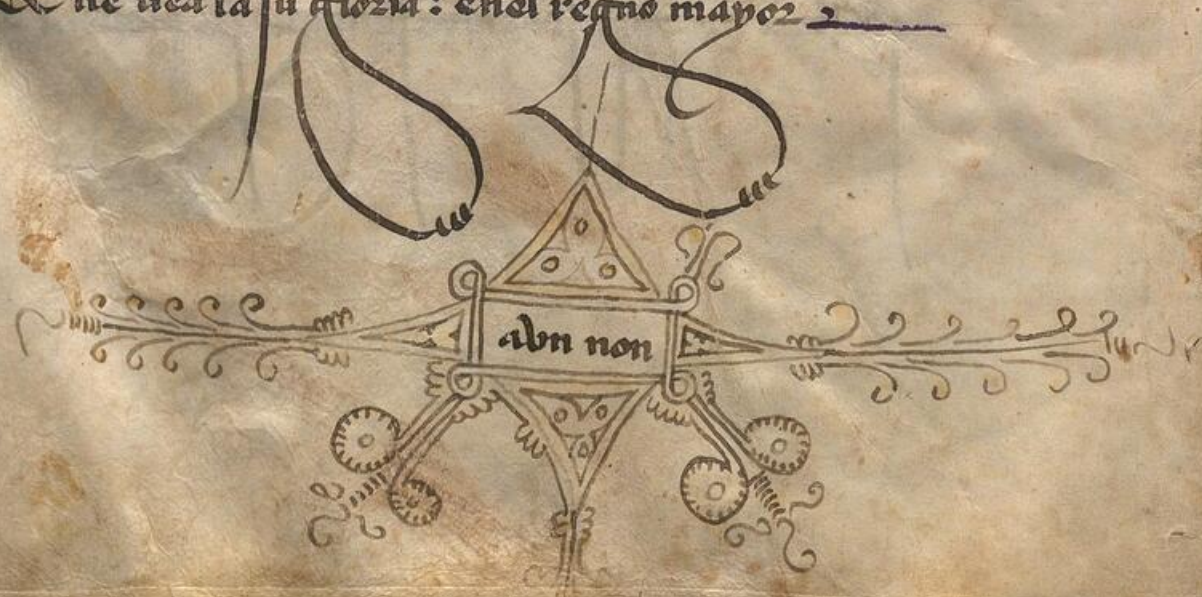 Que vea la su gloria : enel regno mayor
abn non